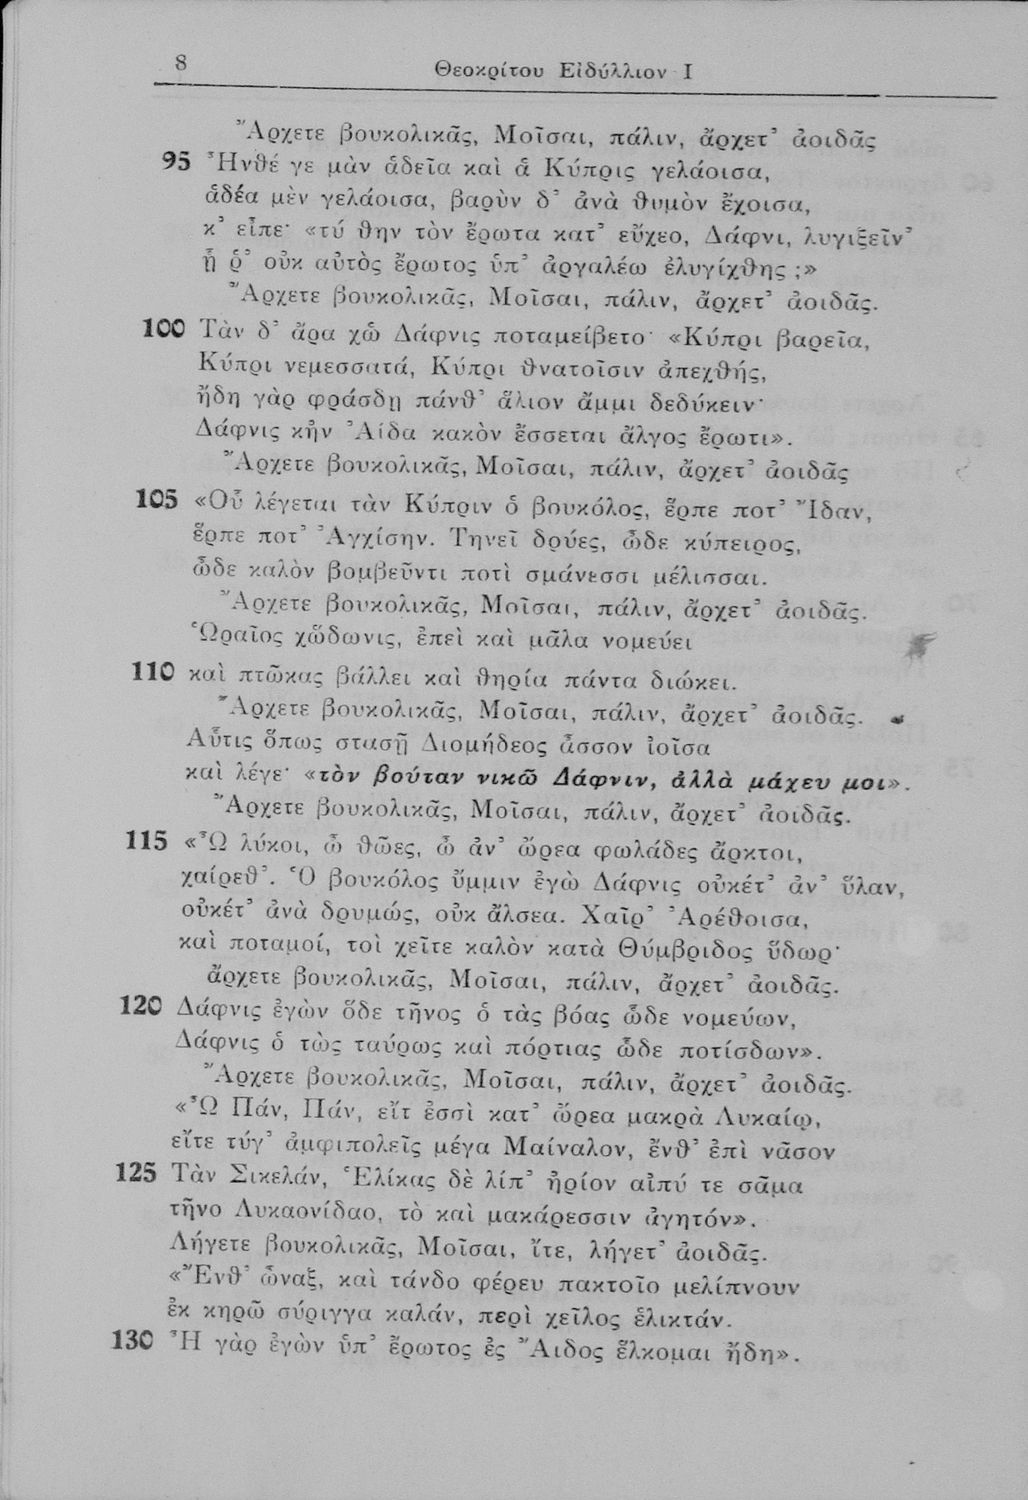 8
Θεοκρίτου Εἰδύλλιον I
Ἄρχετε βουκολικᾶς, Μοῖσαι, πάλιν, ἄρχετ᾽ ἀοιδᾶς
95 Ἦνθέ γε μὰν ἁδεῖα καὶ ἁ Κύπρις γελάοισα,
ἁδέα μὲν γελάοισα, βαρὺν δ᾽ ἀνὰ θυμὸν ἔχοισα,
κ᾽ εἶπε· «τύ θην τὸν ἔρωτα κατ᾽ εὔχεο, Δάφνι, λυγιξεῖν᾽
ἦ ῥ᾽ οὐκ αὐτὸς ἔρωτος ὑπ᾽ ἀργαλέω ἐλυγίχθης ;»
Ἄρχετε βουκολικᾶς, Μοῖσαι, πάλιν, ἄρχετ᾽ ἀοιδᾶς.
100 Τὰν δ᾽ ἄρα χὠ Δάφνις ποταμείβετο· «Κύπρι βαρεῖα,
Κύπρι νεμεσσατά, Κύπρι θνατοῖσιν ἀπεχθής,
ἤδη γὰρ φράσδῃ πάνθ᾽ ἅλιον ἄμμι δεδύκειν·
Δάφνις κἠν Ἀίδα κακὸν ἔσσεται ἄλγος ἔρωτι».
Ἄρχετε βουκολικᾶς, Μοῖσαι, πάλιν, ἄρχετ᾽ ἀοιδᾶς
105 «Οὗ λέγεται τὰν Κύπριν ὁ βουκόλος, ἕρπε ποτ᾽ Ἴδαν,
ἕρπε ποτ᾽ Ἀγχίσην. Τηνεῖ δρύες, ὧδε κύπειρος,
ὧδε καλὸν βομβεῦντι ποτὶ σμάνεσσι μέλισσαι.
Ἄρχετε βουκολικᾶς, Μοῖσαι, πάλιν, ἄρχετ᾽ ἀοιδᾶς.
Ὡραῖος χὥδωνις, ἐπεὶ καὶ μᾶλα νομεύει
110 καὶ πτῶκας βάλλει καὶ θηρία πάντα διώκει.
Ἄρχετε βουκολικᾶς, Μοῖσαι, πάλιν, ἄρχετ᾽ ἀοιδᾶς.
Αὖτις ὅπως στασῇ Διομήδεος ἆσσον ἰοῖσα
καὶ λέγε· «τὸν βούταν νικῶ Δάφνιν, ἀλλὰ μάχευ μοι».
Ἄρχετε βουκολικᾶς, Μοῖσαι, πάλιν, ἄρχετ᾽ ἀοιδᾶς.
115 «Ὦ λύκοι, ὦ θῶες, ὦ ἀν᾽ ὤρεα φωλάδες ἄρκτοι,
χαίρεθ᾽. Ὁ βουκόλος ὔμμιν ἐγὼ Δάφνις οὐκέτ᾽ ἀν᾽ ὕλαν,
οὐκέτ᾽ ἀνὰ δρυμώς, οὐκ ἄλσεα. Χαῖρ᾽ Ἀρέθοισα,
καὶ ποταμοί, τοὶ χεῖτε καλὸν κατὰ Θύμβριδος ὕδωρ·
ἄρχετε βουκολικᾶς, Μοῖσαι, πάλιν, ἄρχετ᾽ ἀοιδᾶς.
120 Δάφνις ἐγὼν ὅδε τῆνος ὁ τὰς βόας ὧδε νομεύων,
Δάφνις ὁ τὼς ταύρως καὶ πόρτιας ὧδε ποτίσδων».
Ἄρχετε βουκολικᾶς, Μοῖσαι, πάλιν, ἄρχετ᾽ ἀοιδᾶς.
«Ὦ Πάν, Πάν, εἴτ ἐσσὶ κατ᾽ ὤρεα μακρὰ Λυκαίῳ,
εἴτε τύγ᾽ ἀμφιπολεῖς μέγα Μαίναλον, ἔνθ᾽ ἐπὶ νᾶσον
125 Τὰν Σικελάν, Ἑλίκας δὲ λίπ᾽ ἠρίον αἰπύ τε σᾶμα
τῆνο Λυκαονίδαο, τὸ καὶ μακάρεσσιν ἀγητόν».
Λήγετε βουκολικᾶς, Μοῖσαι, ἴτε, λήγετ᾽ ἀοιδᾶς.
«Ἔνθ᾽ ὦναξ, καὶ τάνδο φέρευ πακτοῖο μελίπνουν
ἐκ κηρῶ σύριγγα καλάν, περὶ χεῖλος ἑλικτάν.
130 Ἦ γὰρ ἐγὼν ὑπ᾽ ἔρωτος ἐς Ἄιδος ἕλκομαι ἤδη».